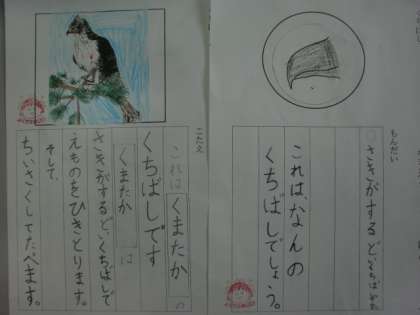 もんだい
さきがするどいくちばしです
これは、なんの
くちばしでしょう。
こたえ
これは くまたか の
くちばしです
くまたか は
さきがするどいくちばしで
えものをひきとります。
そして、
ちいさくしてたべます。